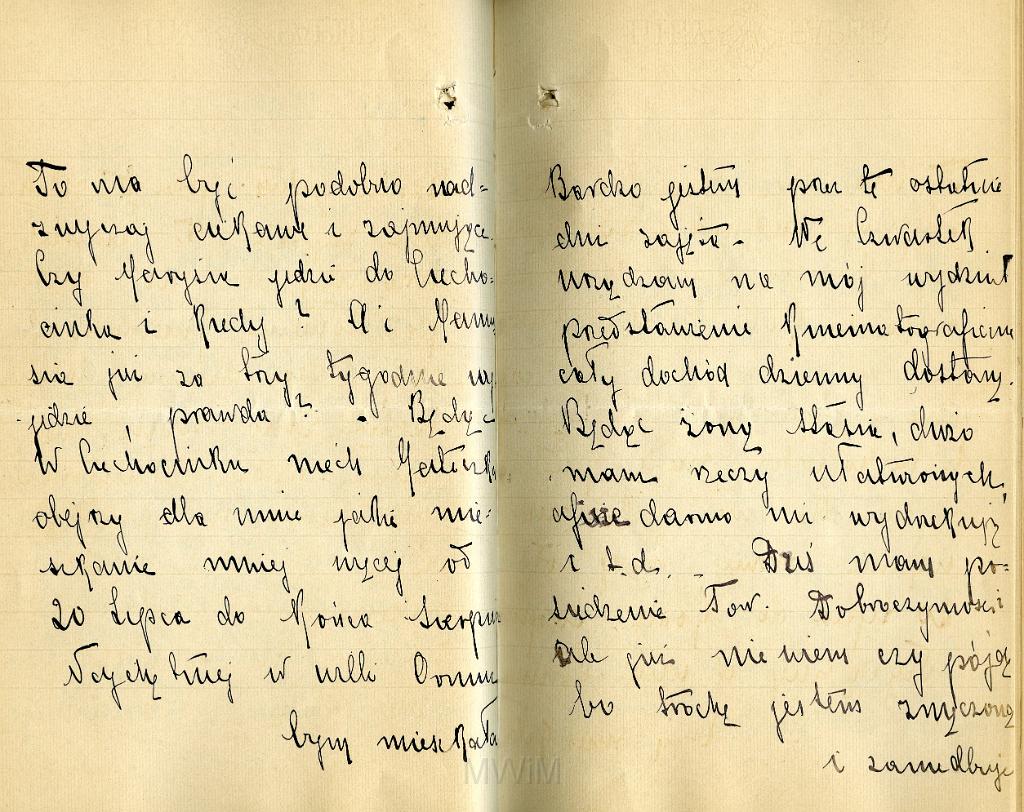 To ma być podobno nad=
zwyczaj ciekawe i zajmujące.
Czy Marysia jedzie do Ciecho=
cinka i kiedy? A i Mamu
sia już za trzy tygodnie wy
jedzie, prawda? - Będąc
w Ciechocinku niech Mateczka
obejrzy dla mnie jakie mie=
szkanie mniej więcej od
20 Lipca do końca Sierpnia
w willi
bym mieszkała
Bardzo jestem prze te ostatnie
dni zajęta. We Czwartek
urządzamy na mój wydział
przedstawienie Kinematograficzne
cały dochód dzienny dostany.
Będąc żoną Stasia, dużo
mam rzeczy ułatwionych,
afisze darmo mi wydrukują
i t.d. - Dziś mamy po=
siedzenie Tow. Dobroczynności
ale już nie wiem czy pójdę
bo trochę jestem zmęczona
i zaniedbuję
MWiM